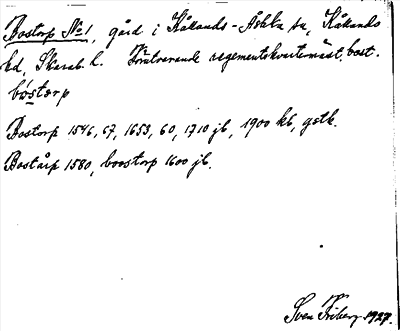 Bostorp No 1, gård i Kålands-Åsaka sn, Kålands
hd, Skarab. l. Förutvarande regementskvartermäst. bost.
bostorp
Bostorp 1546, 67, 1653, 60, 1710 jb, 1900 kb, gstk.
Bostårp 1580, boostorp 1600 jb.
Sven Friberg 1927.